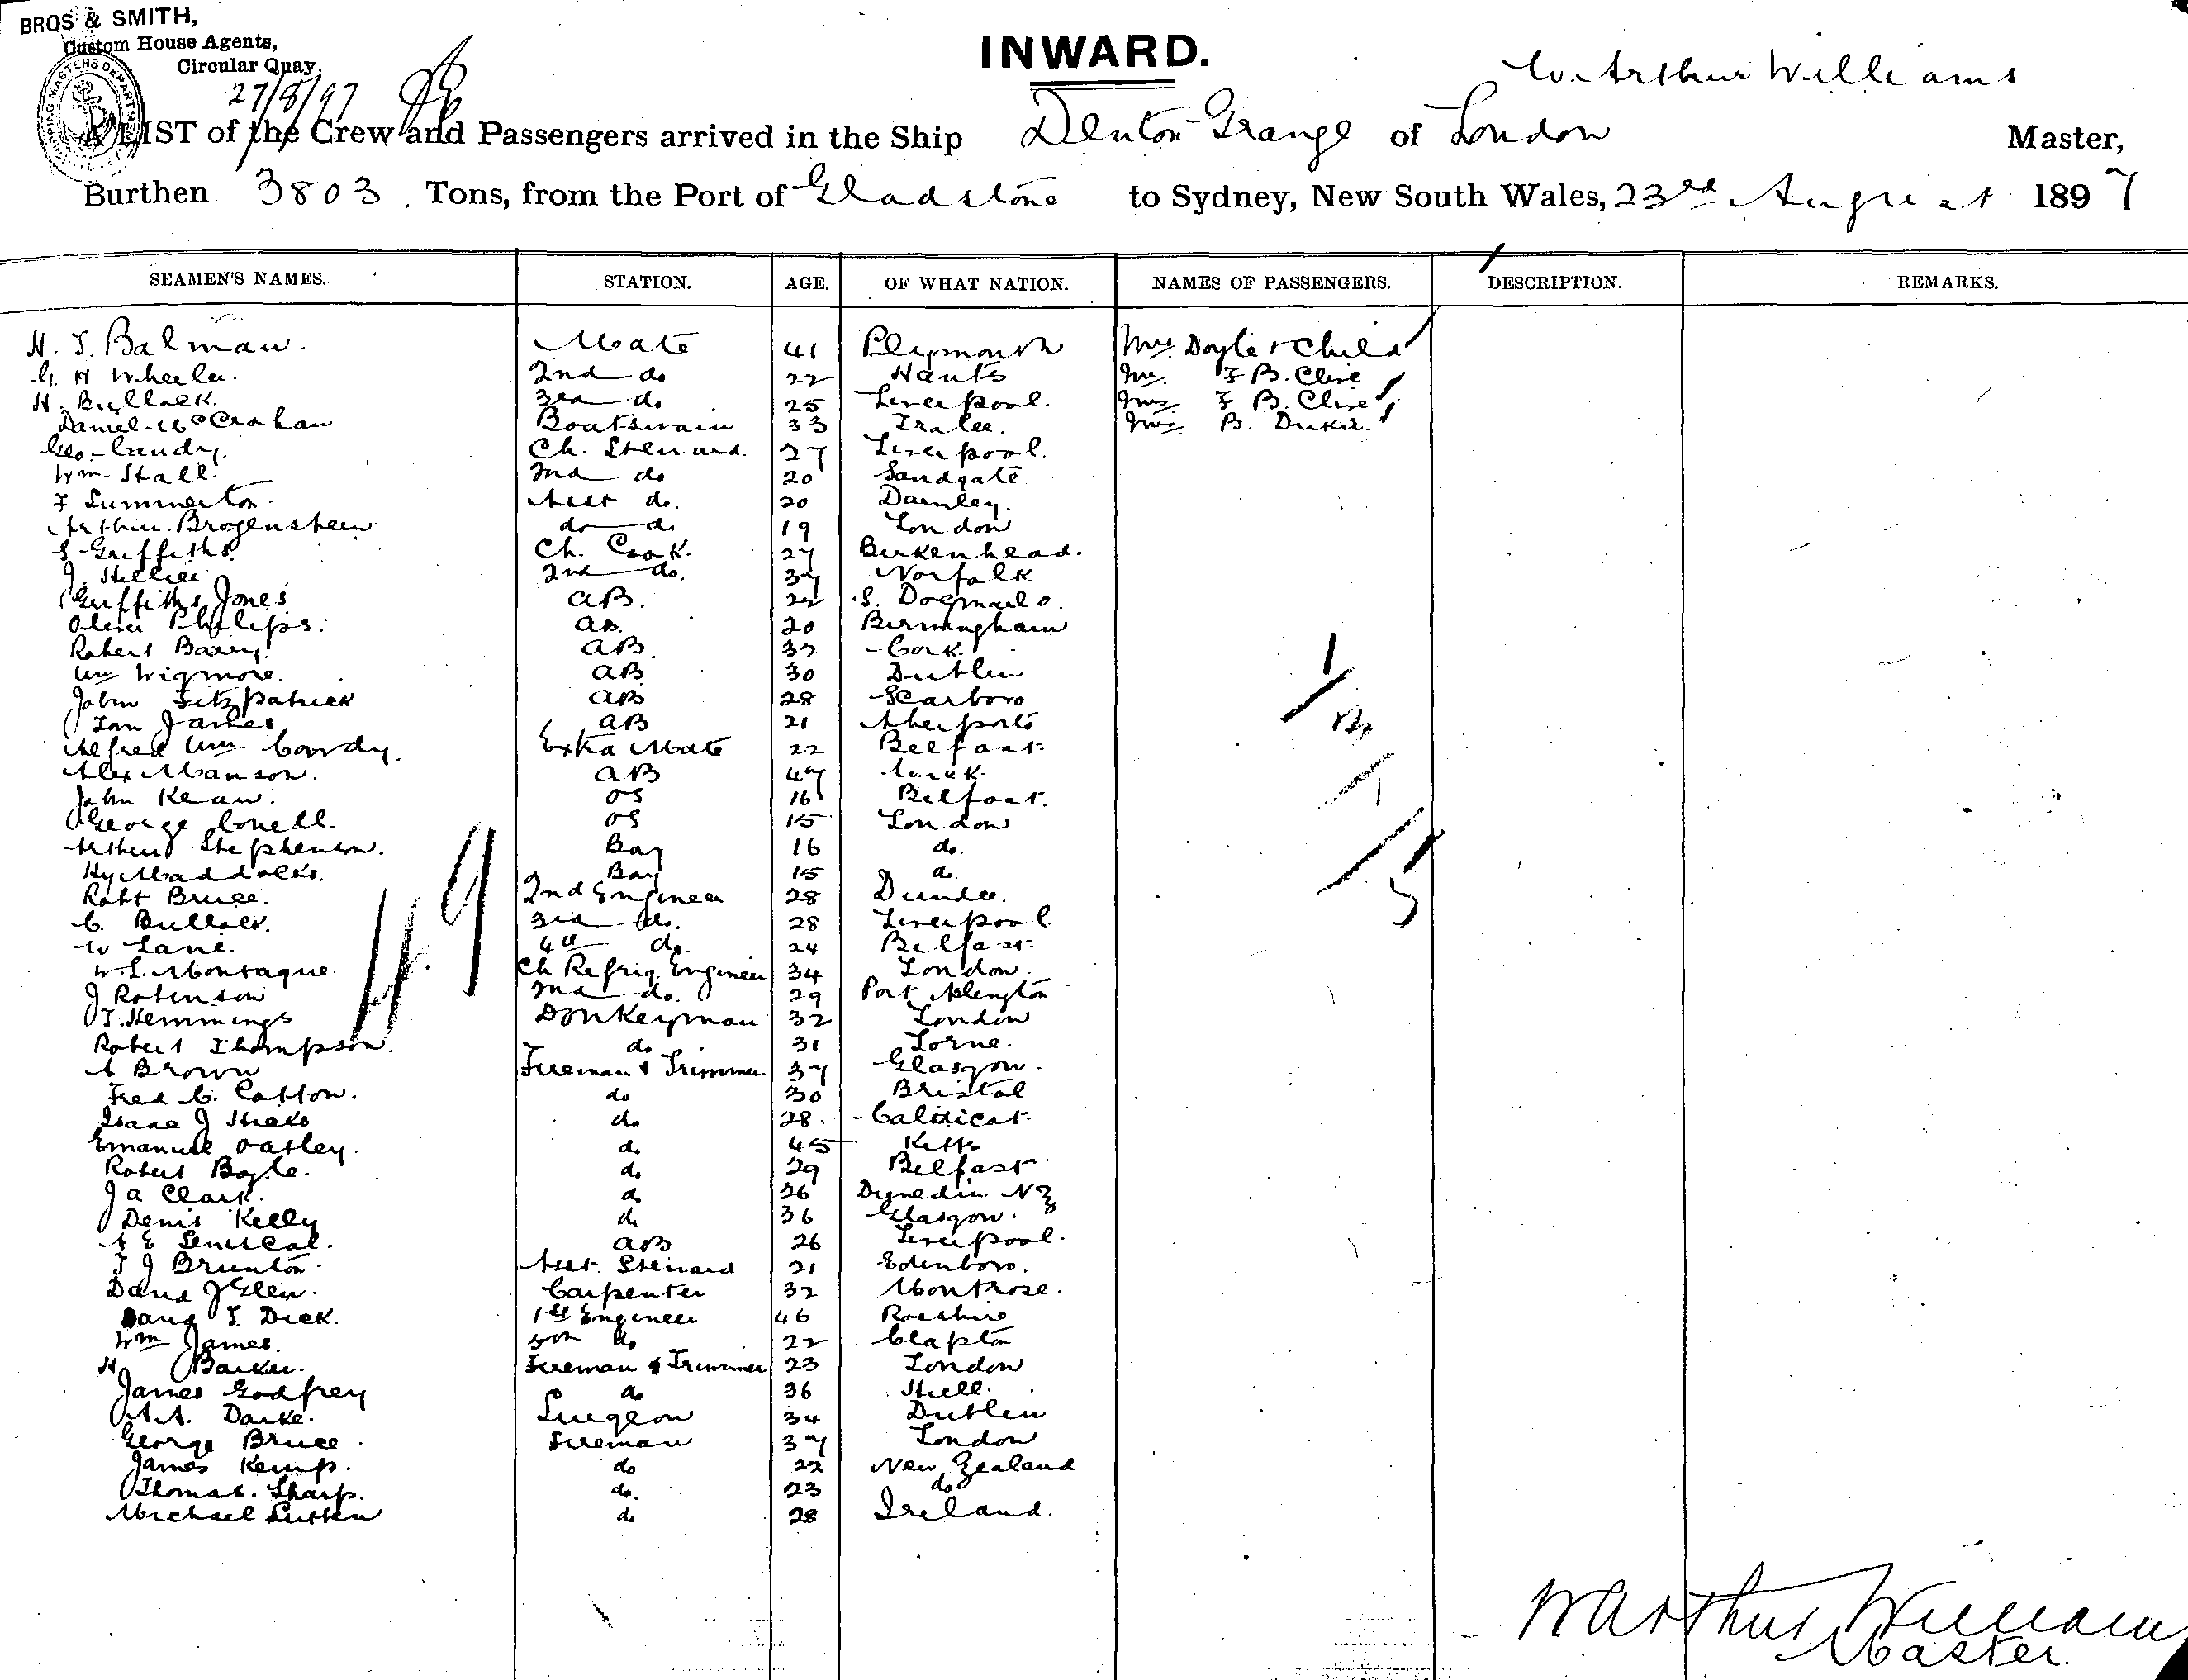 BROS & SMITH,
Custom House Agents,
Circular Quay.
27/8/97
INWARD.
W. Arthur Williams
A LIST of the Crew and Passengers arrived in the Ship Denton Grange of London Master,
Burthen 3803. Tons, from the Port of Gladstone to Sydney, New South Wales, 23rd August 1897
SEAMEN'S NAMES. STATION. AGE. OF WHAT NATION. NAMES OF PASSENGERS. DESCRIPTION. REMARKS.
H. T. Balman. Mate 41 Plymouth Mrs Doyle & Child
G. H Wheeler. 2nd do 22 Hants Mr. F B. Clive
H. Bullock. 3rd do. 25 Liverpool. Mrs F B. Clive
Daniel McCrohan Boatswain 33 Tralee. B.
Geo. Ch. Steward. 27 Liverpool.
Wm Stall. 2nd do 20 Sandgate
F Summerton. Asst do. 20 Darnley.
Arthur do do 19 London
S Griffiths Ch. Cook. 27 Birkenhead.
J. Hillier 2nd do. 37 Norfolk
Griffiths Jones AB. 22 S. Dogmails.
Oliver Philips. AB. 20 Birmingham
Robert Barry. AB. 32 Cork.
Wm Wigmore. AB 30 Dublin
John Fitzpatrick AB 28 Scarboro
James AB 21
Alfred Wm. Cowdy. Extra Mate 22 Belfast
Alex Manson. AB 47 Wick.
John Kean. OS 16 Belfast.
George OS 15 London
Arthur Stephenson. Boy 16 do.
Hy Maddocks. Boy 15 do.
Robt Bruce. 2nd Engineer 28 Dundee.
C. Bullock. 3rd do. 28 Liverpool
W Lane. 4th do. 24 Belfast
W. L. Montague. Ch Refrig. Engineer 34 London.
J Robinson 2nd do. 29 Port
J. Hemmings Donkeyman 32 London
Robert Thompson. do 31 Lorne.
A Brown Fireman & Trimmer. 37 Glasgow.
Fred C. Catton. do 30 Bristol
Isaac J Hicks do. 28. Caldicot.
Emanuel Oatley. do. 45
Robert Boyle. do. 29 Belfast
J A Clark. do 26 Dunedin NZ
Denis Kelly do 36 Glasgow.
A E Senescal. AB 26 Liverpool.
T J Brunton. Asst. Steward 21 Edinboro.
David J Glen. Carpenter 32 Montrose.
David T. Dick. 1st Engineer 46 Rosshire
Wm James. 5th do 22 Clapton
H Barker. Fireman & Trimmer 23 London
James Godfrey do 36 Hull.
A. A. Darke. Surgeon 34 Dublin
George Bruce. Fireman 37 London
James Kemp. do 22 New Zealand
Thomas. Sharp. do. 23 do
Michael do 28 Ireland.
49
W Arthur Williams
Master.